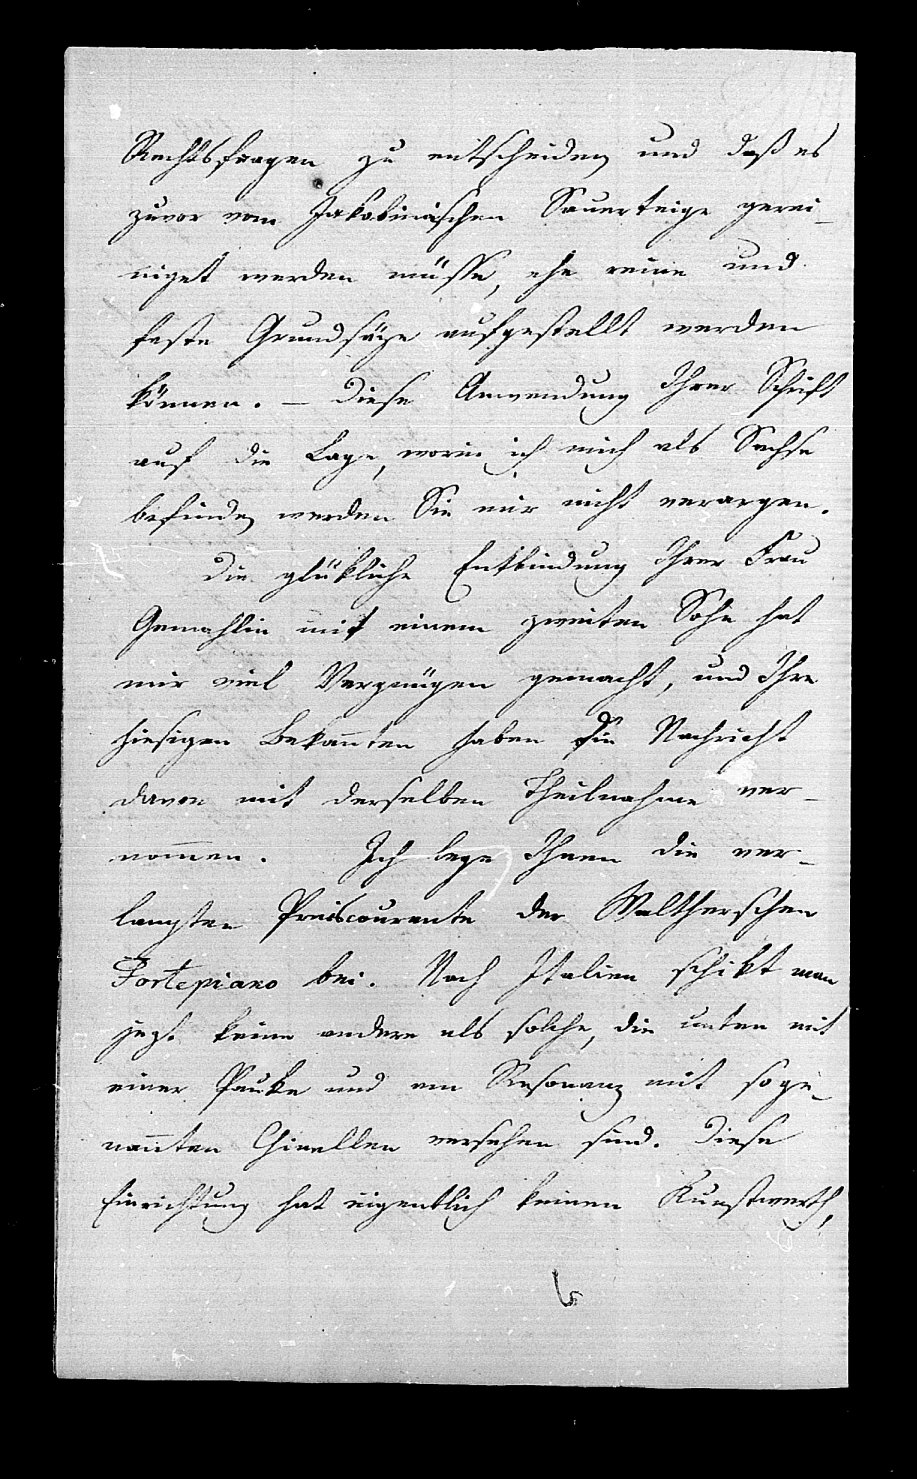 Rechtsfragen zu entscheiden und daß es
zuvor vom Jakobinischen Sauerteige gerei-
niget werden müsse, ehe reine und
feste Grundsäze aufgestellt werden
können. – Diese Anwendung Ihrer Schrift
auf die Lage, worin ich mich als Sachse
befinde, werden Sie mir nicht verargen.
Die glükliche Entbindung Ihrer Frau
Gemahlin mit einem zweiten Sohn hat
mir viel Vergnügen gemacht, und Ihre
hiesigen Bekan̄ten haben die Nachricht
davon mit derselben Theilnahme ver-
nom̄en. Ich lege Ihnen die ver-
langten Preiscourante der Waltherschen
Fortepiano bei. Nach Italien schikt man
jezt keine andere als solche, die unten mit
einer Pauke und am Resonanz mit soge-
nan̄ten Chinellen versehen sind. Diese
Einrichtung hat eigentlich keinen Kunstwerth,